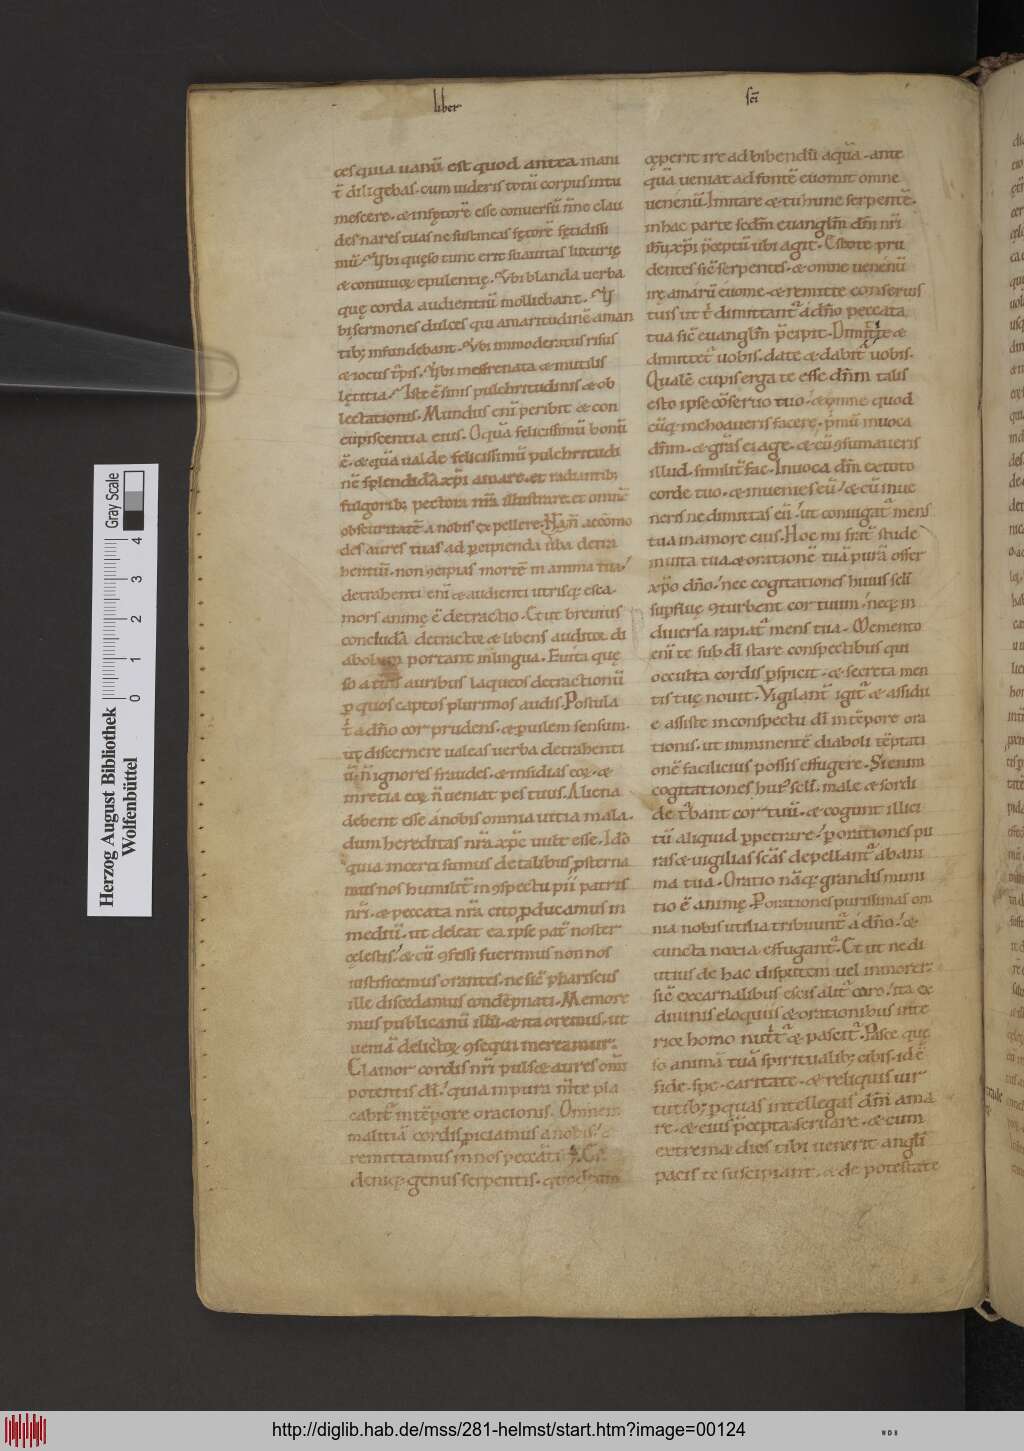 liber
sci̅
ces quia uanu̅ est quod antea inani
t̅ diligebas. cum uideris totu̅ corpus intu
mescere. & in fętore̅ esse conuersu̅ n̅ne clau
des nares tuas ne sustineas fętore̅ fętidissi
mu̅. Vbi quęso tunc erit suauitas luxurię
& conuiuioꝝ epulentię. Vbi blanda uerba
quę corda audientiu̅ molliebant. Vbi
sermones dulces qui amaritudine̅ aman
tibꝫ infundebant. Vbi immoderatus risus
& iocus t̅pis. Vbi ineffrenata & inutilis
lętitia. Iste e̅ finis pulchritudinis & ob
lectationis. Mundus eni̅ peribit & con
cupiscentia eius. O qua̅ felicissimu̅ bonu̅
e̅. & qua̅ ualde felicissimu̅ pulchritudi
ne̅ splendida̅ xp̅i amare. et radiantibꝫ
fulgoribꝫ pectora nr̅a illustrare. et omne̅
obscuritate̅ a nobis expellere. Na̅ n̅ acco̅mo
des aures tuas ad ꝑcipienda u̅ba detra
hentiu̅. non ꝯcipias morte̅ in anima tua.
detrahenti eni̅ & audienti utrisqꝫ esca
mors animę e̅ detractio. Et ut breuius
concluda̅ detractor & libens auditor di
abolum portant in lingua. Euita quę
so a tuis auribus laqueos detractionu̅
ꝑ quos captos plurimos audis. Postula
t̅ a dn̅o cor prudens. & ꝑuilem sensum.
ut discernere ualeas uerba detrahenti
u̅. n̅ ignores fraudes. & insidias eoꝝ. &
in retia eoꝝ n̅ ueniat pes tuus. Aliena
debent esse a nobis omnia uitia mala.
dum hereditas nr̅a xp̅c uult esse. Ido̅
quia incerti sumus de talibus ꝓsterna
mus nos humilit̅ in ꝯspectu pii patris
nr̅i. & peccata nr̅a cito ꝓducamus in
mediu̅. ut deleat ea ipse pat̅ noster
cęlestis. & cu̅ ꝯfessi fuerimus non nos
iustificemus orantes. ne sic̅ phariseus
ille discedamus conde̅pnati. Memore
mus publicanu̅ illu̅. & ita oremus. ut
uenia̅ delictoꝝ ꝯsequi mereamur.
Clamor cordis nr̅i pulset aures om̅i
potentis di̅. quia in pura m̅te pla
cabit̅ in te̅pore oracionis. Omnem
malitia̅ cordis ꝓiciamus a nobis. &
remittamus in nos peccantibꝫ. Est
deniqꝫ genus serpentis. quod cum
cęperit ire ad bibendu̅ aqua̅. ante
qua̅ ueniat ad fonte̅ euomit omne
uenenu̅. Imitare & tu hunc serpente̅.
in hac parte sedm̅ euanglm̅ dm̅ nr̅i
ih̅u xp̅i p̅ceptu̅ ubi agit. Estote pru
dentes sic̅ serpentes. & omne uenenu̅
irę amaru̅ euome. & remitte conseruis
tuis ut t̅ dimittant̅ a dn̅o peccata
tua sic̅ euanglm̅ p̅cipit. Dimitte &
dimittet̅ uobis. date & dabit̅ uobis.
Quale̅ cupis erga te esse dn̅m talis
esto ipse co̅seruo tuo. & omne quod
cu̅qꝫ inchoaueris facere. p̅mu̅ inuoca
dn̅m. & gra̅s ei age. & cu̅ ꝯsumaueris
illud. similit̅ fac. Inuoca dn̅m ex toto
corde tuo. & inuenies eu̅. & cu̅ inue
neris ne dimittas eu̅. ut coniugat̅ mens
tua in amore eius. Hoc mi frat̅ stude
in uita tua. & oratione̅ tua̅ pura̅ offer
xp̅o dn̅o. nec cogitationes huius seli̅
supfluę ꝯturbent cor tuum. neqꝫ in
diuersa rapiat̅ mens tua. Memento
eni̅ te sub di̅ stare conspectibus qui
occulta cordis ꝓspicit. & secreta men
tis tuę nouit. Vigilant̅ igit̅ & assidu
e assiste in conspectu di̅ in te̅pore ora
tionis. ut imminente̅ diaboli te̅ptati
one̅ facilicius possis effugere. Si enim
cogitationes hui̅ seli̅. male & sordi
de t̅bant cor tuu̅. & cogunt illici
tu̅ aliquid ꝑpetrare. ꝑ orationes pu
ras & uigilias sca̅s depellant̅ ab ani
ma tua. Oratio na̅qꝫ grandis muni
tio e̅ animę. P orationes purissimas om
nia nobis utilia tribuunt̅ a dn̅o. &
cuncta noxia effugant̅. Et ut ne di
utius de hac disputem uel inmorer.
sic̅ ex carnalibus escis alit̅ caro. ita ex
diuinis eloquiis & orationibus inte
rior homo nutrit̅ & pascit̅. Pasce quę
so anima̅ tua̅ spiritualibꝫ cibis. id e̅
fide. spe. caritate. & reliquis uir
tutibꝫ. ꝑ quas intellegas dn̅m ama
re. & eius p̅cepta seruare. & cum
extremæ dies tibi uenerit angli̅
pacis te suscipiant. & de potestate
Gray Scale
0 1 2 3 4
Herzog August Bibliothek
Wolfenbüttel
http://diglib.hab.de/mss/281-helmst/start.htm?image=00124